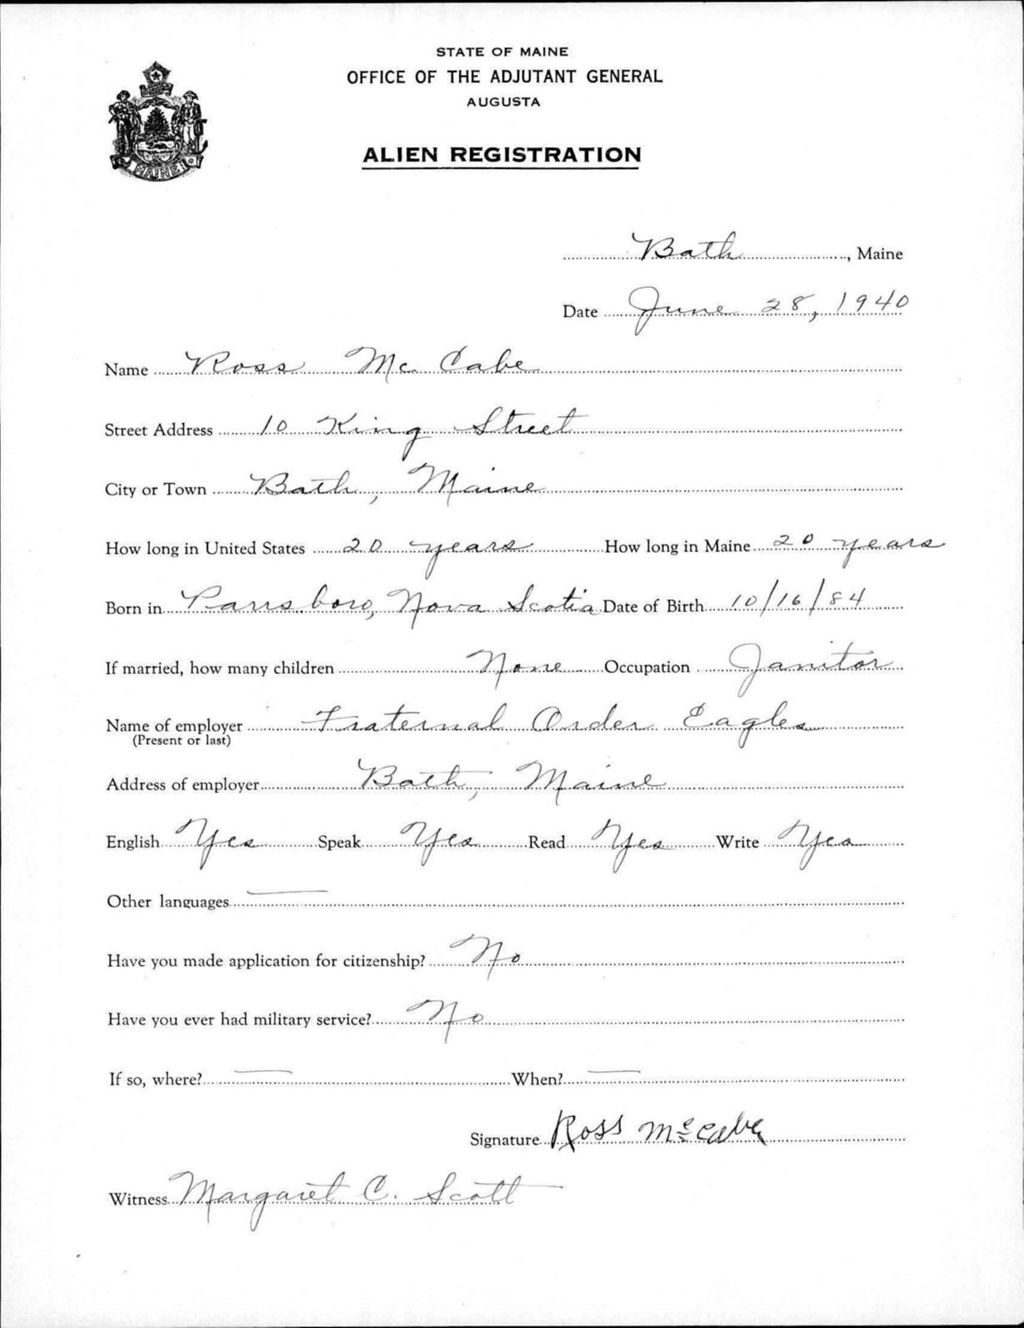 STATE OF MAINE
OFFICE OF THE ADJUTANT GENERAL
AUGUSTA
ALIEN REGISTRATION
MAINE
Bath, Maine
Date June 28, 1940
Name Ross Mc Cabe
Street Address 10 King Street
City or Town Bath, Maine
How long in United States 20 years How long in Maine 20 years
Born in Parrsboro, Nova Scotia Date of Birth 10/16/84
If married, how many children None Occupation Janitor
Name of employer Fraternal Order Eagles
(Present or last)
Address of employer Bath, Maine
English Yes Speak Yes Read Yes Write Yes
Other languages —
Have you made application for citizenship? No
Have you ever had military service? No
If so, where? — When? —
Signature Ross McCabe
Witness Margaret C. Scott